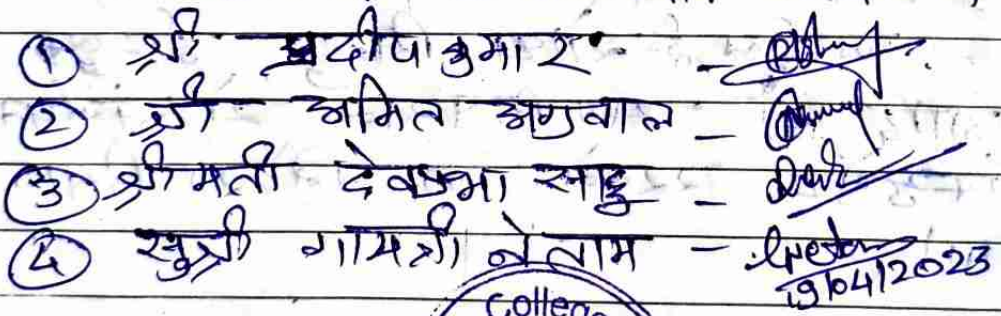 ① श्री प्रदीप कुमार -
② श्री अमित अग्रवाल -
③ श्रीमती देवप्रभा साहू -
④ सुश्री गायत्री नेताम -
19/04/2023
College